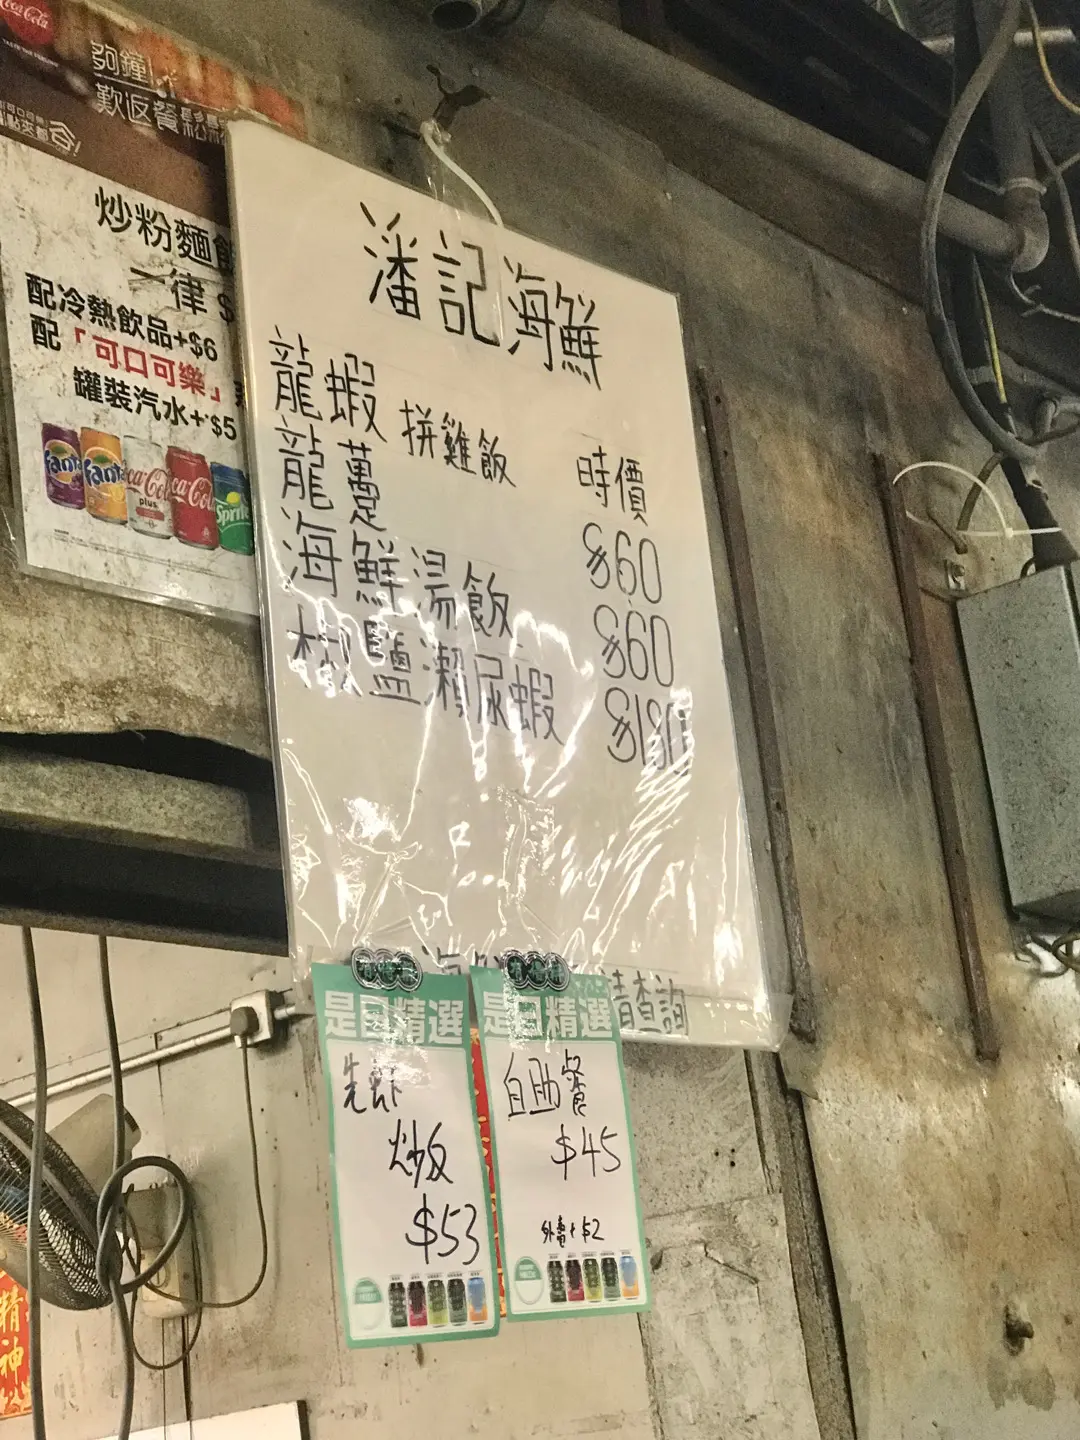 Coca-Cola
夠鐘!
歎返餐
炒粉麵飯
一律 $
配冷熱飲品+$6
配「可口可樂」
罐裝汽水+$5
Fanta
Fanta
Coca-Cola
plus
Coca-Cola
Sprite
潘記海鮮
龍蝦 拼雞飯 時價
龍躉 $60
海鮮湯飯 $60
椒鹽瀨尿蝦 $130
請查詢
是日精選
炒飯
$53
是日精選
自助餐
$45
外賣+$2
精
神